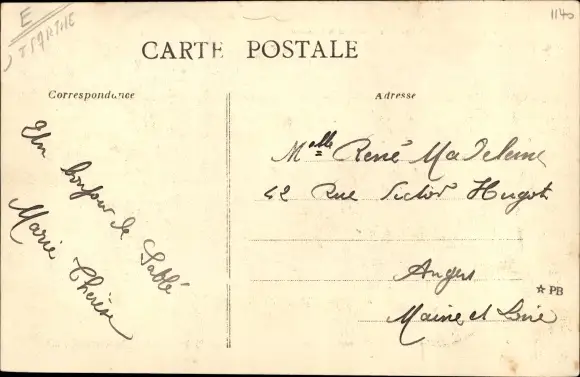 E
SARTHE
1140
CARTE POSTALE
Correspondance
Adresse
Un bonjour de Sablé
Marie Thérèse
Melle René Madeleine
42 Rue Victor Hugot
Angers
Maine et Loire
☆ PB